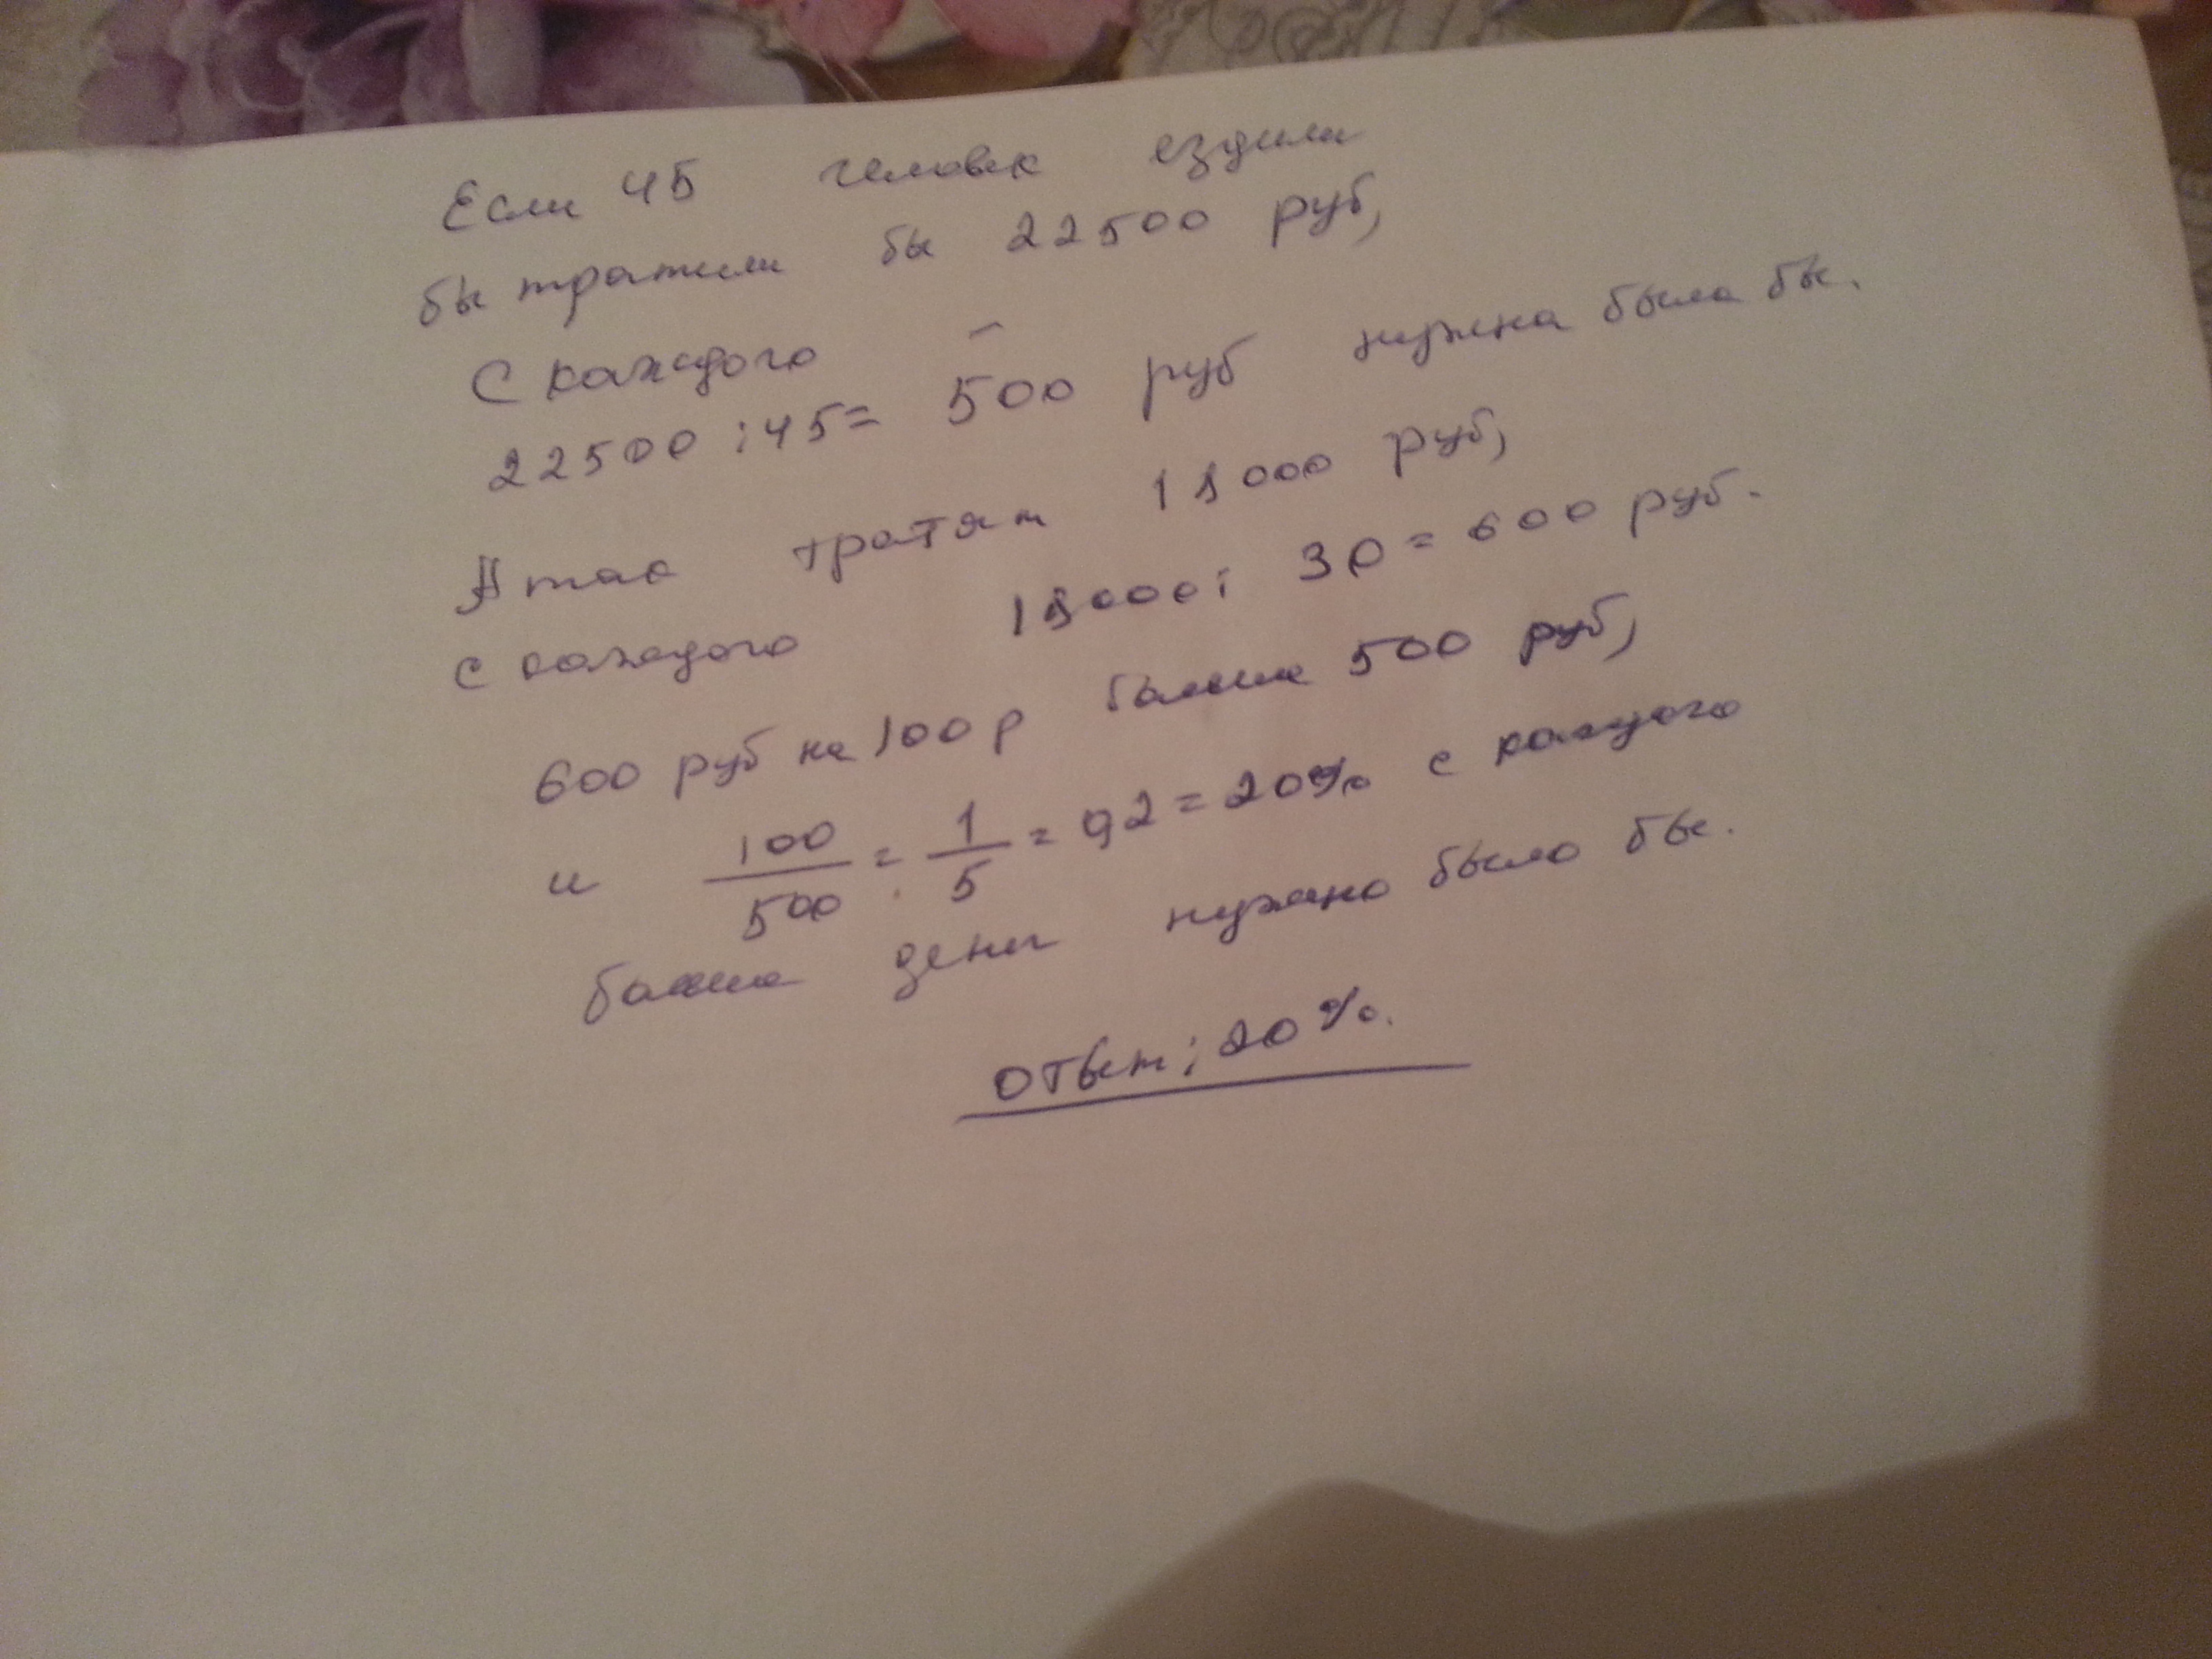 Если 45 человек ездили
бы тратили бы 22500 руб,
С каждого
22500 : 45 = 500 руб нужна была бы.
А так тратят 18000 руб,
с каждого 18000 : 30 = 600 руб.
600 руб на 100 р больше 500 руб,
и 100/500 = 1/5 = 0,2 = 20% с каждого
больше денег нужно было бы.
Ответ: 20%.